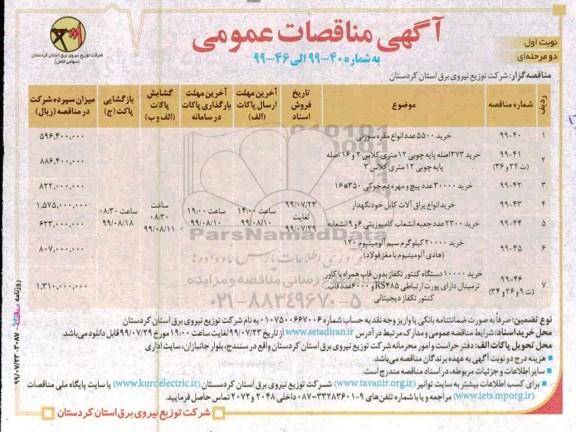 آگهی مناقصات عمومی
به شماره ۴۰-۹۹ الی ۴۶-۹۹
نوبت اول
دو مرحله‌ای
شرکت توزیع نیروی برق استان کردستان
(سهامی خاص)
مناقصه‌گزار: شرکت توزیع نیروی برق استان کردستان
ردیف | شماره مناقصه | موضوع | تاریخ فروش اسناد | آخرین مهلت ارسال پاکات (الف) | آخرین مهلت بارگذاری پاکات در سامانه | گشایش پاکات (الف و ب) | بازگشایی پاکت (ج) | میزان سپرده شرکت در مناقصه (ریال)
۱ | ۹۹-۴۰ | خرید ۵۵۰۰ عدد انواع مقره سوزنی | ۵۹۶,۴۰۰,۰۰۰
۲ | ۹۹-۴۱ (ت ۲۲ و ۳۶) | خرید ۳۷۳ اصله پایه چوبی ۱۲ متری کلاس ۲ و ۱۶ اصله پایه چوبی ۱۲ متری کلاس ۳ | ۸۸۶,۴۰۰,۰۰۰
۳ | ۹۹-۴۲ | خرید ۲۰۰۰۰ عدد پیچ و مهره دم خوکی ۳۵۰*۱۶ | ۸۲۲,۰۰۰,۰۰۰
۴ | ۹۹-۴۳ | خرید انواع یراق آلات کابل خودنگهدار | ۱,۵۷۵,۰۰۰,۰۰۰
۵ | ۹۹-۴۴ | خرید ۲۳۰۰ عدد جعبه انشعاب کامپوزیتی ۶ و ۹ انشعابه | ۶۲۳,۰۰۰,۰۰۰
۶ | ۹۹-۴۵ | خرید ۲۰۰۰۰ کیلوگرم سیم آلومینیوم ۱۲۰ (هادی آلومینیوم با مغز فولاد) | ۸۰۷,۰۰۰,۰۰۰
۷ | ۹۹-۴۶ (ت ۹ و ۲۶ و ۳۴) | خرید ۱۰۰۰۰ دستگاه کنتور تکفاز بدون قاب همراه با کاور ترمینال دارای پورت ارتباطی RS۴۸۵ و ۶۰۰۰ عدد قاب کنتور تکفاز دیجیتالی | ۱,۳۱۰,۰۰۰,۰۰۰
۹۹/۰۷/۲۳ لغایت ۹۹/۰۷/۲۹ | ساعت ۱۴:۰۰ ۹۹/۰۸/۱۰ | ساعت ۱۹:۰۰ ۹۹/۰۸/۱۰ | ساعت ۰۸:۳۰ ۹۹/۰۸/۱۱ | ساعت ۰۸:۳۰ ۹۹/۰۸/۱۸
ParsNamadData
۰۲۱-۸۸۳۴۹۶۷۰-۵
نوع تضمین: صرفاً به صورت ضمانتنامه بانکی یا واریز وجه نقد به حساب شماره ۰۱۰۷۵۰۰۶۶۷۰۰۶ به نام شرکت توزیع نیروی برق استان کردستان
محل خرید اسناد: شرایط مناقصه عمومی و مدارک مرتبط در آدرس www.setadiran.ir از تاریخ ۹۹/۰۷/۲۳ لغایت ساعت ۱۹:۰۰ مورخ ۹۹/۰۷/۲۹ قابل دانلود می‌باشد.
محل تحویل پاکات الف: دفتر حراست و امور محرمانه شرکت توزیع نیروی برق استان کردستان واقع در سنندج، بلوار جانبازان، سایت اداری
هزینه درج دو نوبت آگهی به عهده برندگان مناقصه می‌باشد.
سایر اطلاعات و جزئیات مربوطه، در اسناد مناقصه مندرج است.
برای کسب اطلاعات بیشتر به سایت توانیر (www.tavanir.org.ir) شرکت توزیع نیروی برق استان کردستان (www.kurdelectric.ir) یا سایت پایگاه ملی مناقصات
(www.iets.mporg.ir) مراجعه و یا با شماره تلفن‌های ۹-۳۳۲۸۳۶۰۱-۰۸۷ داخلی ۲۰۴۸ و ۲۰۷۲ تماس حاصل فرمایید.
شرکت توزیع نیروی برق استان کردستان